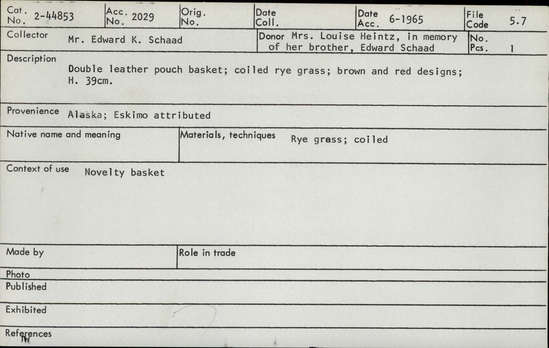 Cat. No. 2-44853 Acc. No. 2029 Orig. No. Date Coll. Date Acc. 6-1965 File Code 5.7
Collector Mr. Edward K. Schaad Donor Mrs. Louise Heintz, in memory of her brother, Edward Schaad No. Pcs. 1
Description Double leather pouch basket; coiled rye grass; brown and red designs;
H. 39cm.
Provenience Alaska; Eskimo attributed
Native name and meaning Materials, techniques Rye grass; coiled
Context of use Novelty basket
Made by Role in trade
Photo
Published
Exhibited
References